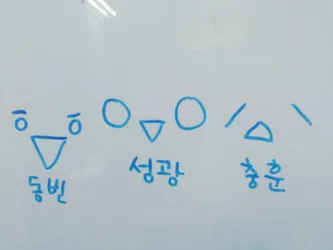 동빈
성광
충훈